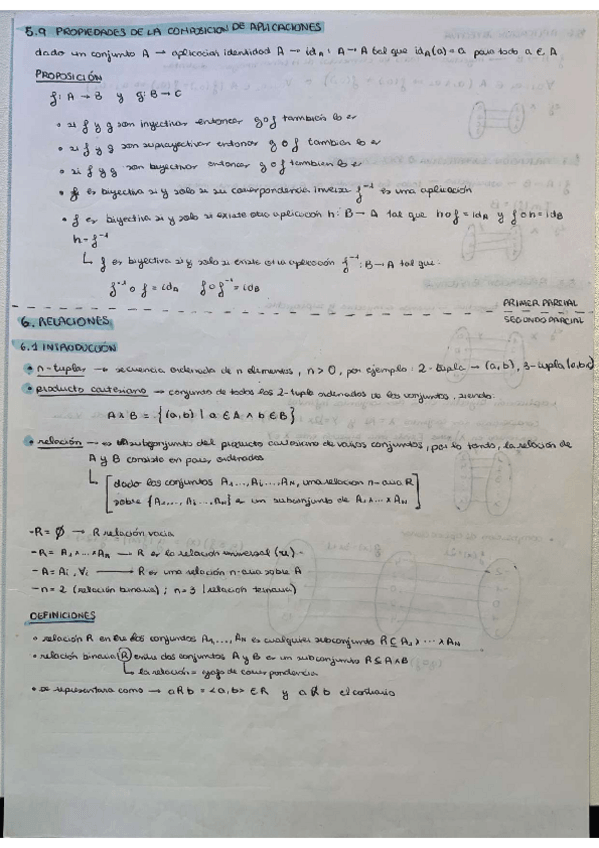 5.9 PROPIEDADES DE LA COMPOSICION DE APLICACIONES
dado un conjunto A → aplicacion identidad A → id_A : A → A tal que id_A(a) = a para todo a ∈ A
PROPOSICIÓN
f: A → B y g: B → C
• si f y g son inyectivas entonces g∘f tambien lo es
• si f y g son suprayectivas entonces g∘f tambien lo es
• si f y g son biyectivas entonces g∘f tambien lo es
• f es biyectiva si y solo si su correspondencia inversa f⁻¹ es una aplicación
• f es biyectiva si y solo si existe otra aplicación h: B → A tal que h∘f = id_A y f∘h = id_B
h = f⁻¹
↳ f es biyectiva si y solo si existe otra aplicación f⁻¹: B → A tal que:
f⁻¹∘f = id_A f∘f⁻¹ = id_B
PRIMER PARCIAL
SEGUNDO PARCIAL
6. RELACIONES
6.1 INTRODUCCIÓN
• n-tuplas → secuencia ordenada de n elementos, n > 0, por ejemplo: 2-tupla → (a,b), 3-tupla (a,b,c)
• producto cartesiano → conjunto de todas las 2-tupla ordenadas de los conjuntos, siendo:
A × B = {(a,b) | a ∈ A ∧ b ∈ B}
• relación → subconjunto del producto cartesiano de varios conjuntos, por lo tanto, la relación de
A y B consiste en pares ordenados
↳ [dado los conjuntos A₁..., Ai..., A_N, una relacion n-aria R
sobre {A₁..., Ai..., A_N} es un subconjunto de A₁ × ... × A_N]
- R = ∅ → R relación vacia
- R = A₁ × ... × A_n → R es la relacion universal (u)
- A = Ai, ∀i → R es una relación n-aria sobre A
- n = 2 (relación binaria) ; n = 3 (relacion ternaria)
DEFINICIONES
• relación R entre los conjuntos A₁, ..., A_N es cualquier subconjunto R ⊆ A₁ × ... × A_N
• relación binaria (R) entre dos conjuntos A y B es un subconjunto R ⊆ A × B
↳ la relación = grafo de correspondencia
• se representara como → aRb = <a,b> ∈ R y a R̸ b el contrario